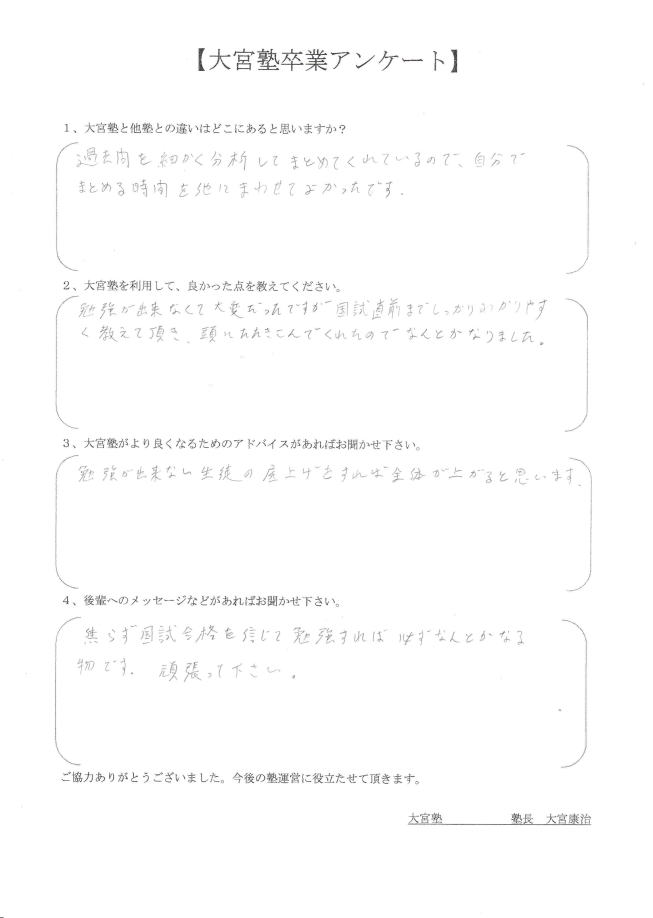 【大宮塾卒業アンケート】
1、大宮塾と他塾との違いはどこにあると思いますか？
過去問を細かく分析してまとめてくれているので、自分で
まとめる時間を他にまわせてよかったです.
2、大宮塾を利用して、良かった点を教えてください。
勉強が出来なくて大変だったですが国試直前までしっかりわかりやす
く教えて頂き、頭にたたきこんでくれたのでなんとかなりました。
3、大宮塾がより良くなるためのアドバイスがあればお聞かせ下さい。
勉強が出来ない生徒の底上げをすれば全体が上がると思います.
4、後輩へのメッセージなどがあればお聞かせ下さい。
焦らず国試合格を信じて勉強すれば必ずなんとかなる
物です. 頑張って下さい。
ご協力ありがとうございました。今後の塾運営に役立たせて頂きます。
大宮塾 塾長 大宮康治